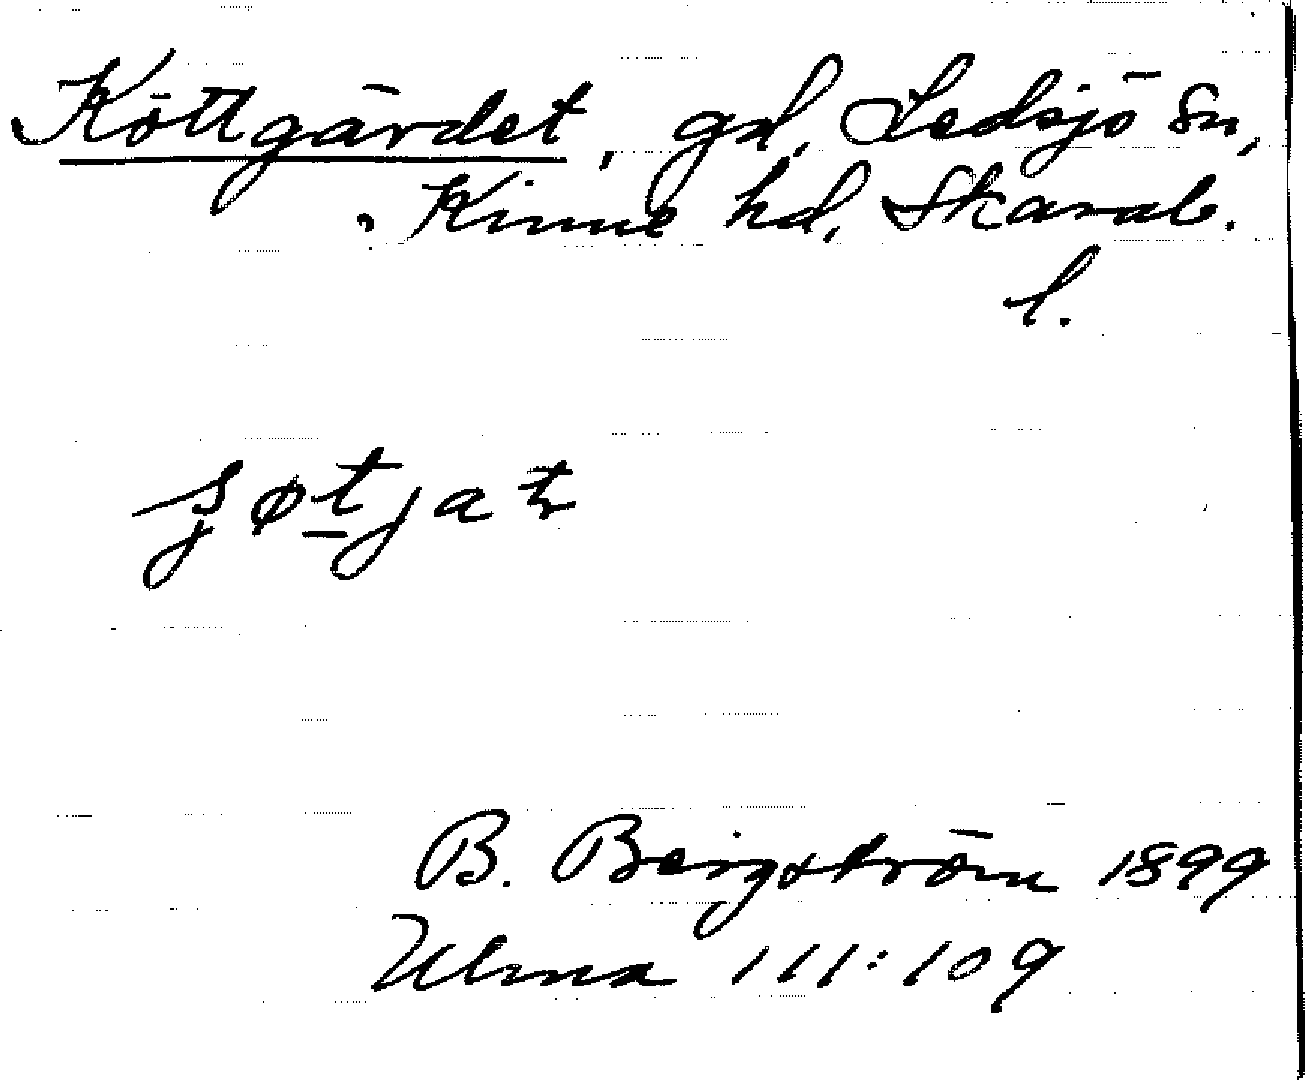 Köttgärdet, gd, Ledsjö sn,
Kinne hd, Skarab.
l.
B. Bergström 1899
Ulma 111:109